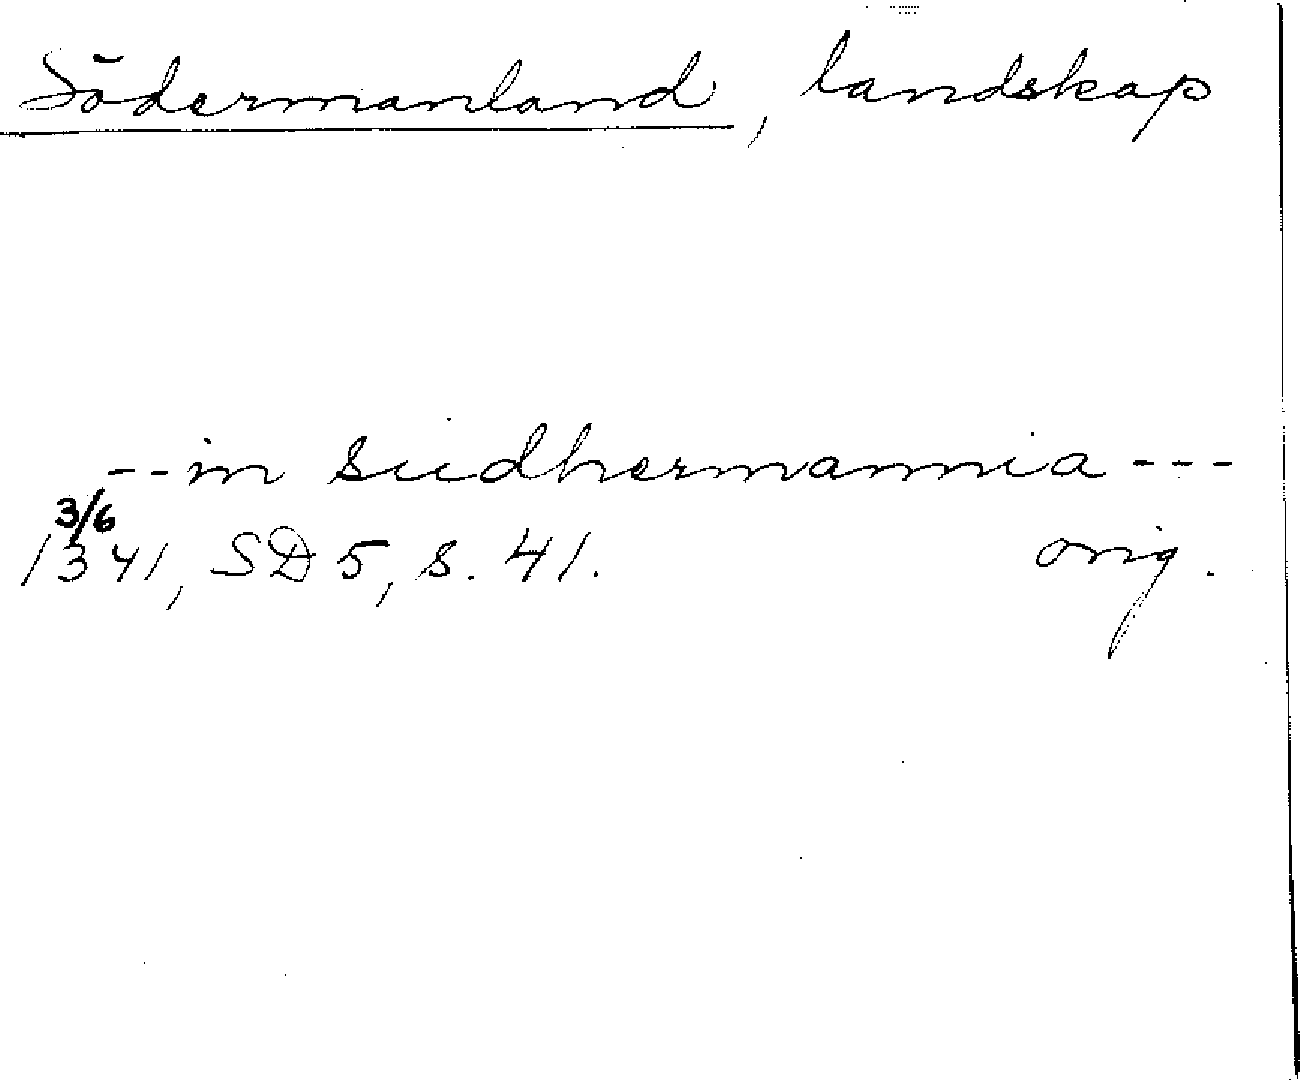 Södermanland, landskap
-- in sudhermannia ---
3/6
1341, SD 5, s. 41. orig.